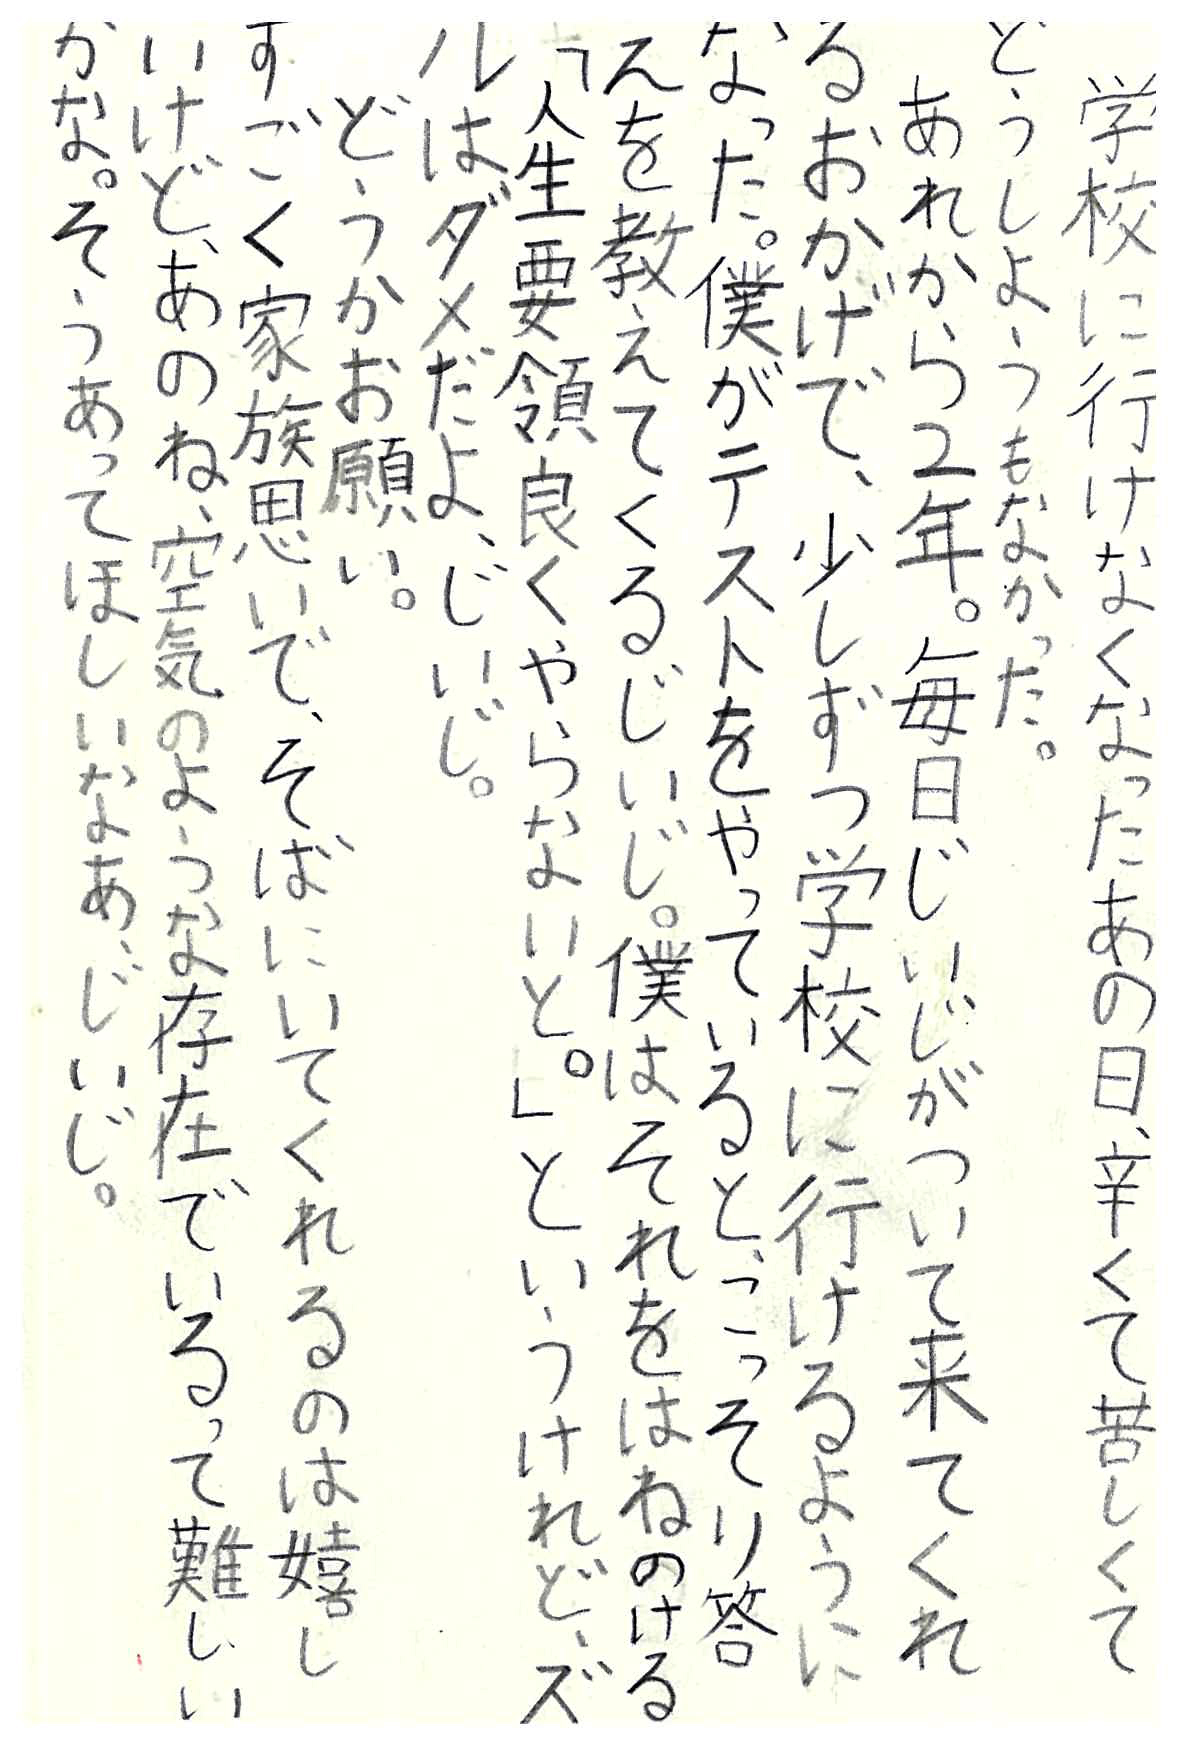 学校に行けなくなったあの日、辛くて苦しくて
どうしようもなかった。
あれから2年。毎日じいじがついて来てくれ
るおかげで、少しずつ学校に行けるように
なった。僕がテストをやっていると、こっそり答
えを教えてくるじいじ。僕はそれをはねのける
「人生要領良くやらないと。」というけれど、ズ
ルはダメだよ、じいじ。
どうかお願い。
すごく家族思いで、そばにいてくれるのは嬉し
いけど、あのね、空気のような存在でいるって難しい
かな。そうあってほしいなあ、じいじ。